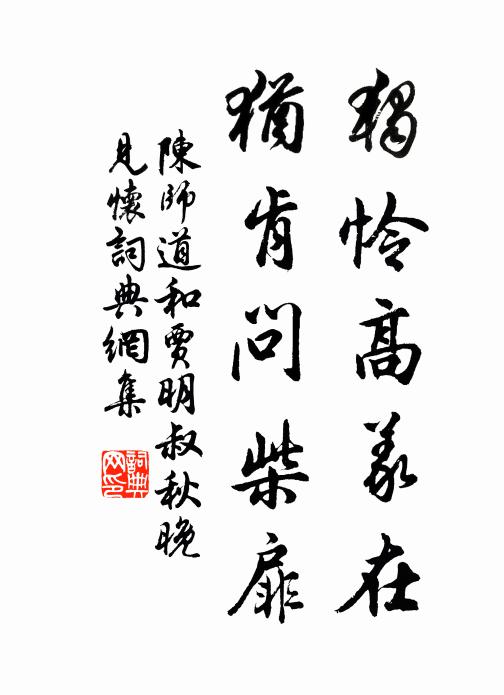 獨怜高义在
猶肯問柴扉
陳師道和賈明叔秋晚
見懷詞典網集
詞典网印